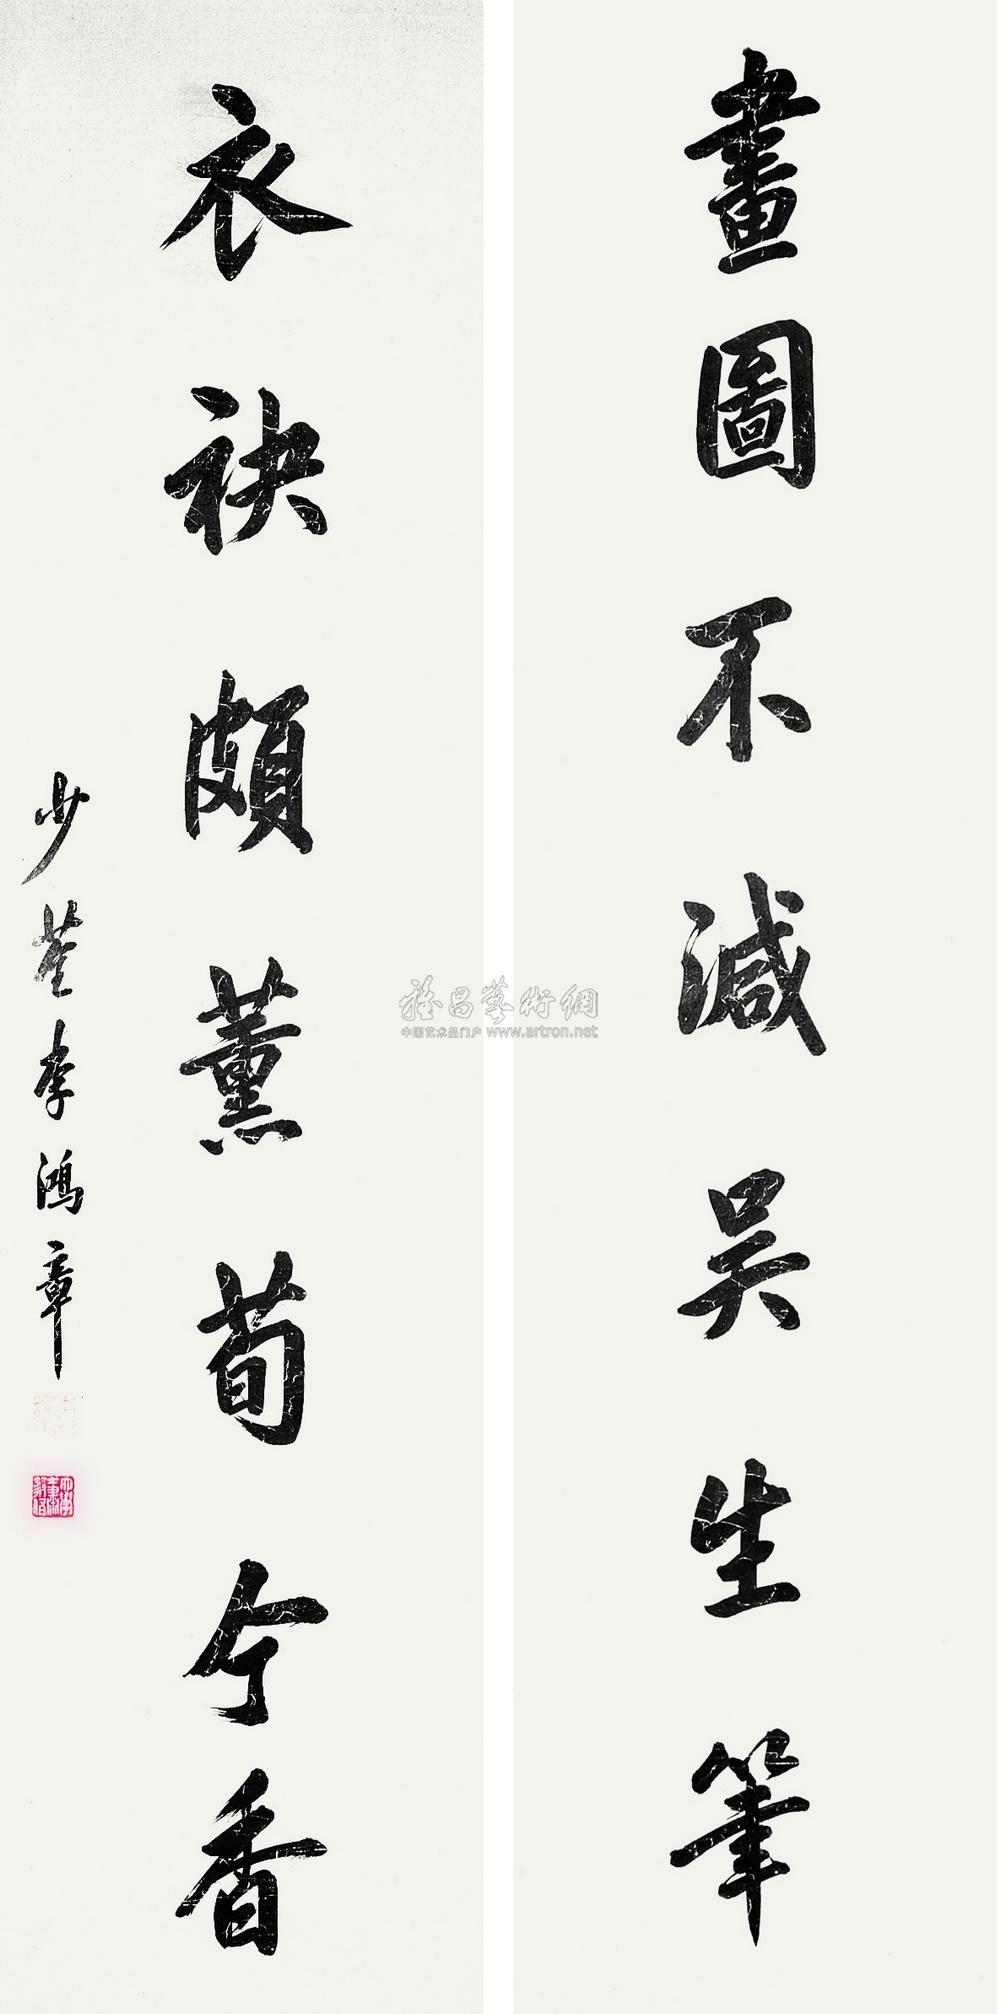 畫圖不減吳生筆
衣袂頗薰荀令香
少荃李鴻章
雅昌藝術網
中国艺术品门户 www.artron.net